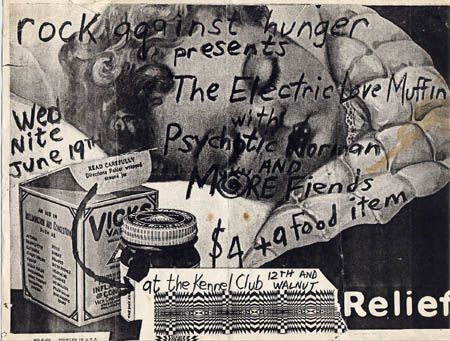 rock against hunger
presents
The Electric Love Muffin
with
Psychotic Norman
AND
MORE Fiends
Wed
Nite
June 19TH
READ CAREFULLY
Directions Folder wrapped
around jar
VICKS
VA
$4 + a food item
at the Kennel Club 12TH AND
WALNUT
Relief
PRINTED IN U.S.A.